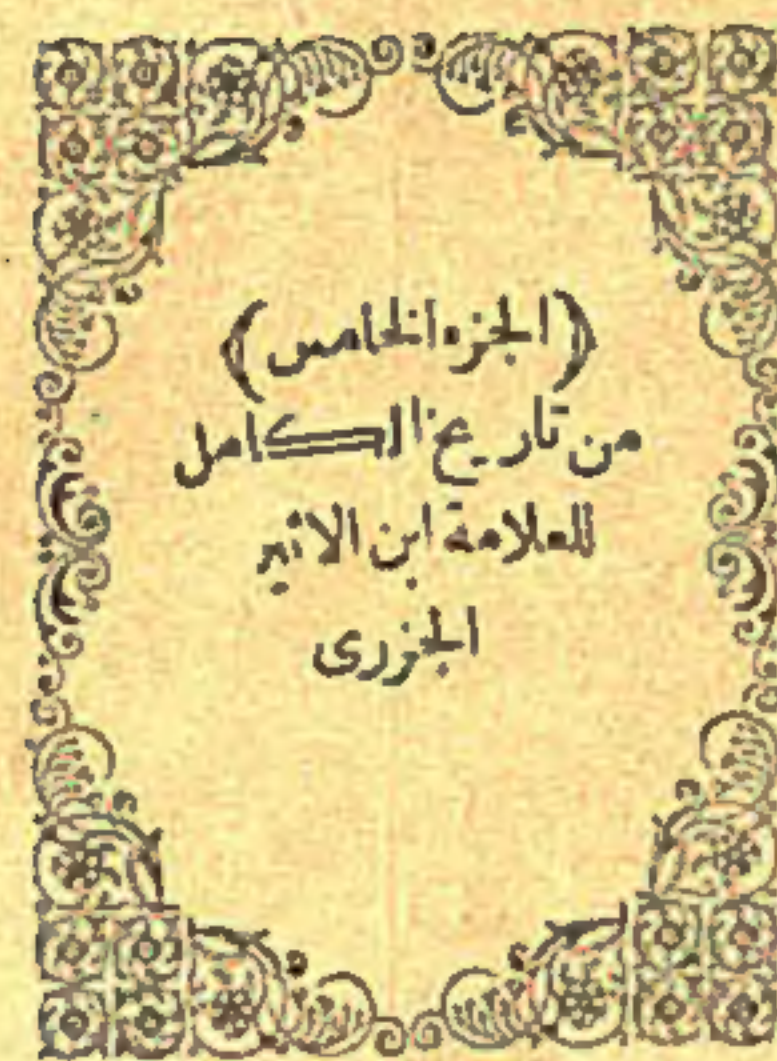 (الجزء الخامس)
من تاريخ الكامل
للعلامة ابن الاثير
الجزرى